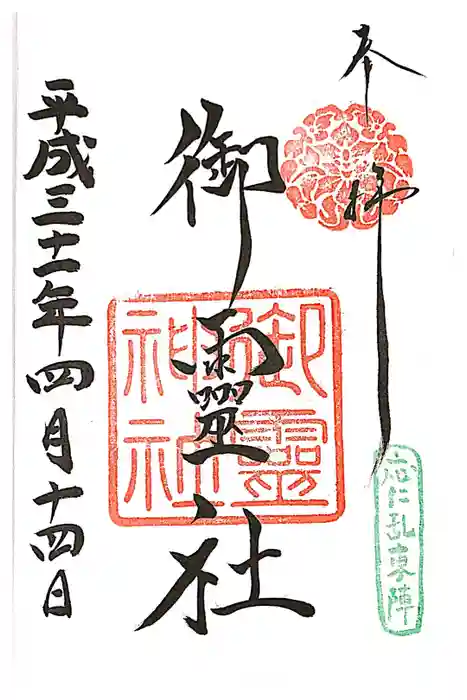 奉拝
応仁乱東陣
御靈社
御靈神社
平成三十一年四月十四日